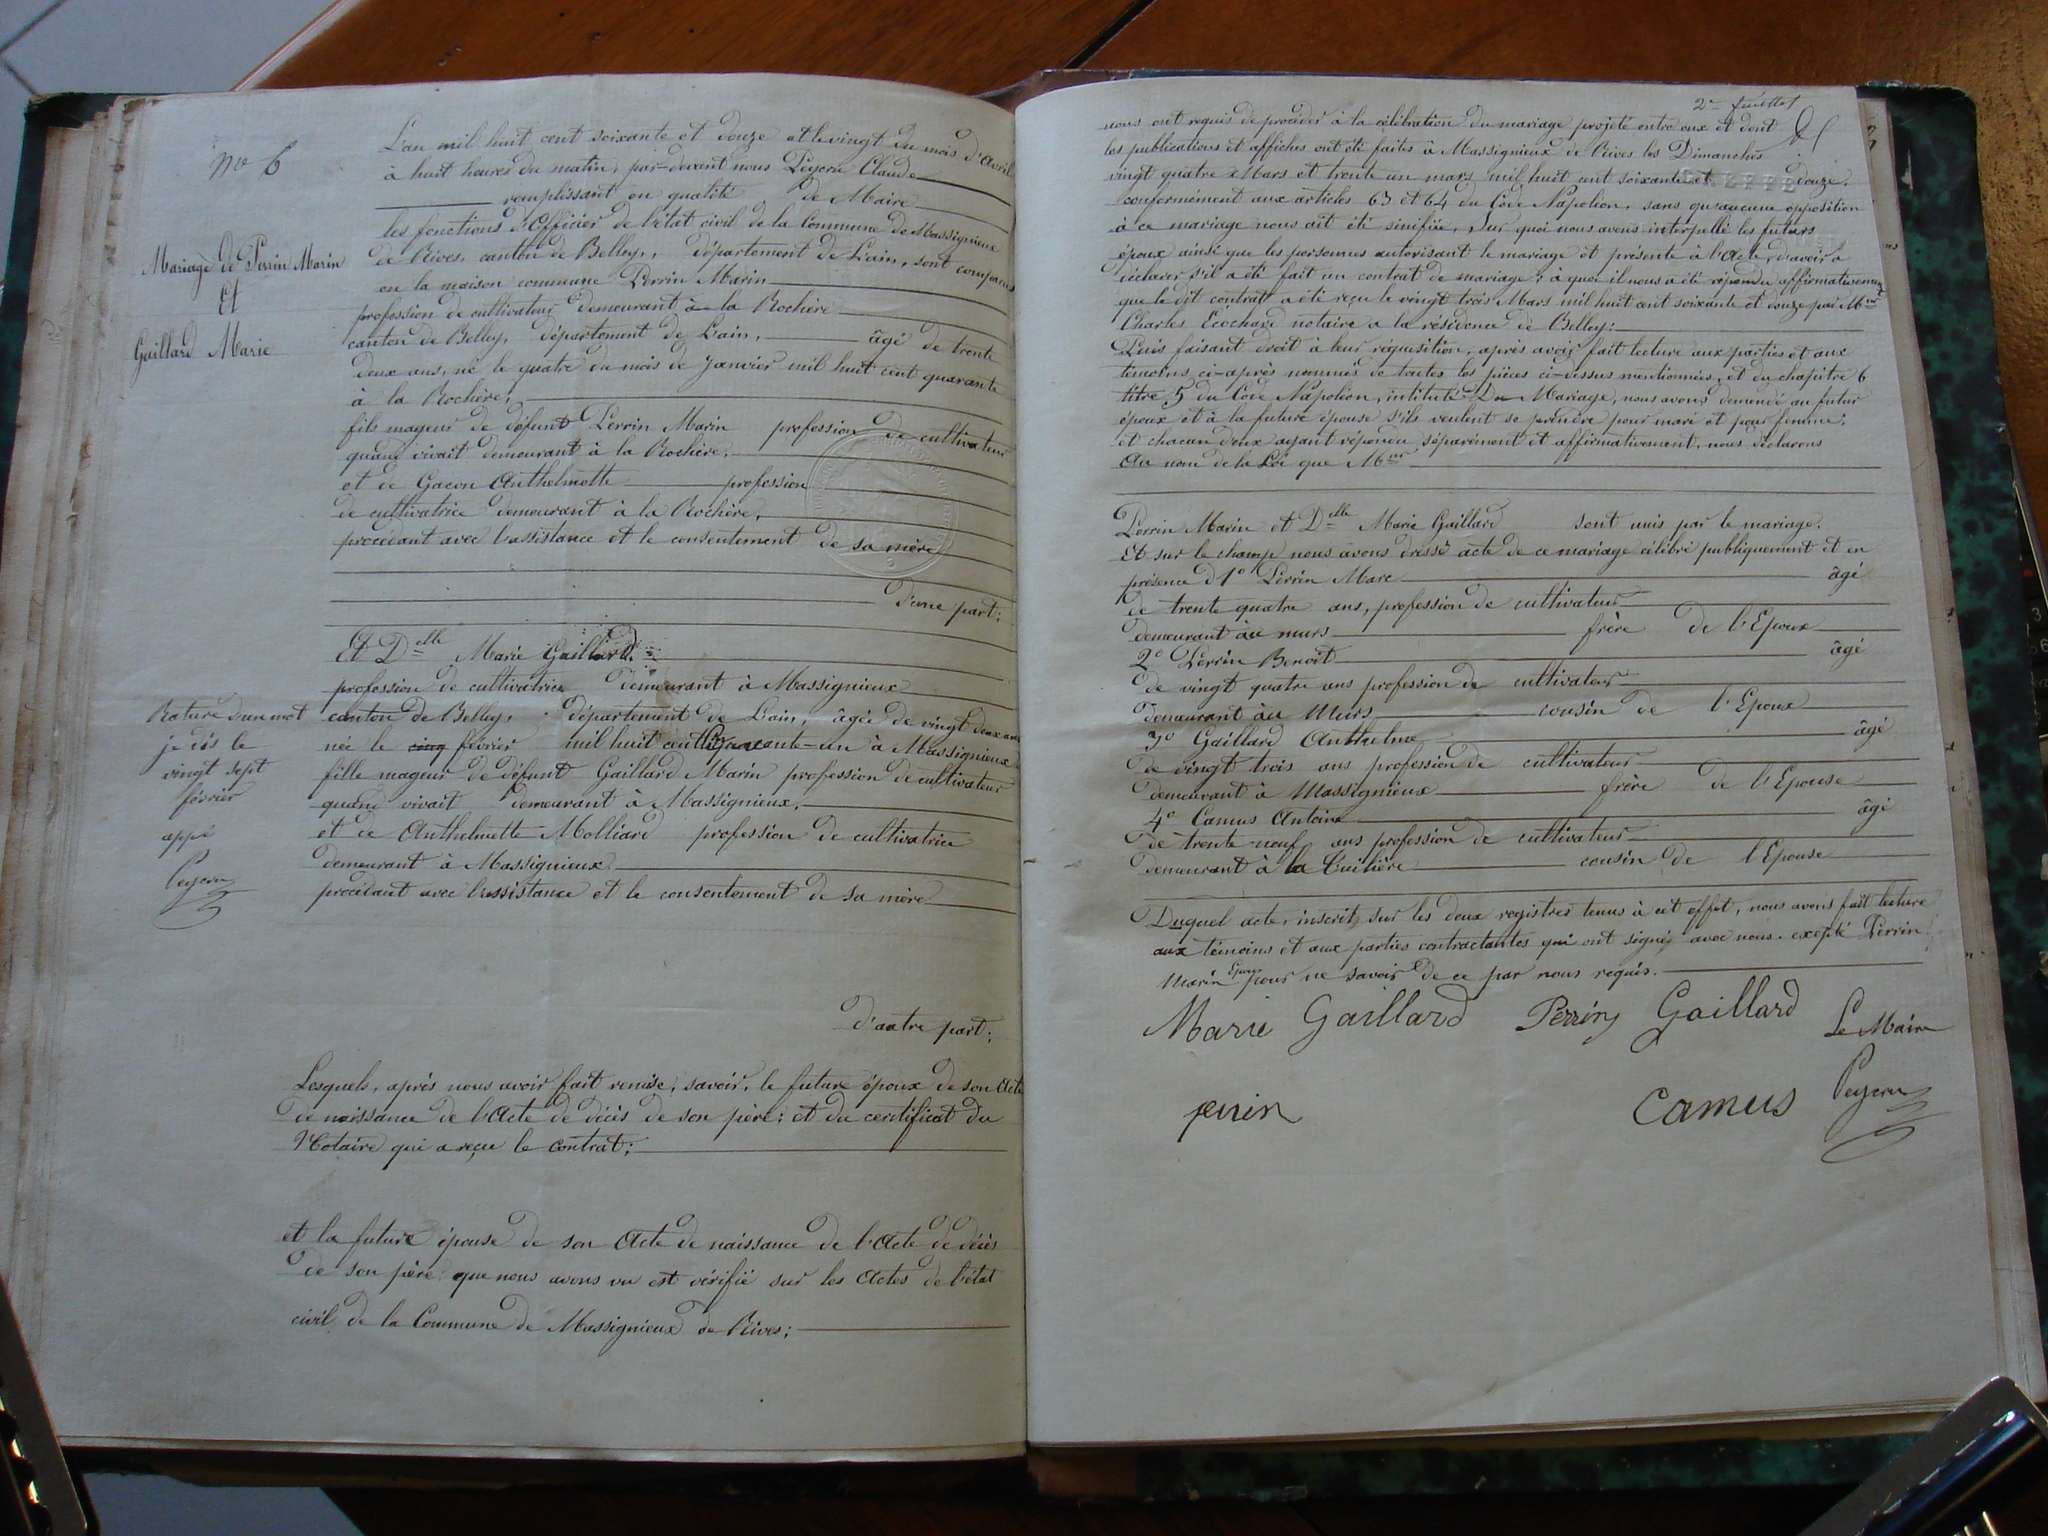 No 6
Mariage de Perrin Marin
Et
Gaillard Marie
L'an mil huit cent soixante et douze et le vingt du mois d'Avril
à huit heures du matin, par-devant nous Peysson Claude
remplissant en qualité de Maire
les fonctions d'Officier de l'état civil de la Commune de Massignieux
de Rives, canton de Belley, département de l'ain, sont comparus
en la maison commune Perrin Marin
profession de cultivateur demeurant à la Rochère
canton de Belley, département de l'ain, âgé de trente
deux ans, né le quatre du mois de Janvier mil huit cent quarante
à la Rochère,
fils mageur de défunt Perrin Marin profession de cultivateur
quand vivait demeurant à la Rochère,
et de Gacon Anthelmette profession
de cultivatrice demeurant à la Rochère,
procédant avec l'assistance et le consentement de sa mère
d'une part;
Et Delle Marie Gaillard
profession de cultivatrice demeurant à Massignieux
canton de Belley, département de l'ain, âgée de vingt deux ans
née le cinq février mil huit cent quarante-un à Massignieux
fille mageur de défunt Gaillard Marin profession de cultivateur
quand vivait demeurant à Massignieux,
et de Anthelmette Molliard profession de cultivatrice
demeurant à Massignieux
procédant avec l'assistance et le consentement de sa mère
Rature d'un mot
je dis le
vingt sept
février
d'autre part;
Lesquels, après nous avoir fait remise, savoir, le future époux de son Acte
de naissance de l'Acte de décès de son père; et du certificat du
Notaire qui a reçu le contrat;
et la future épouse de son Acte de naissance de l'Acte de décès
de son père que nous avons vu est vérifié sur les Actes de l'état
civil de la Commune de Massignieux de Rives;
2e feuillet
nous ont requis de procéder à la célébration du mariage projeté entre eux et dont
les publications et affiches ont été faites à Massignieux de Rives les Dimanches
vingt quatre Mars et trente un mars mil huit cent soixante et douze.
conformément aux articles 63 et 64 du Code Napoléon, sans qu'aucune opposition
à ce mariage nous ait été sinifiée, Sur quoi nous avons interpellé les futurs
époux ainsi que les personnes autorisant le mariage et présente à l'Acte, d'avoir à
déclarer s'il a été fait un contrat de mariage; à quoi il nous a été répondu affirmativement
que le dit contrat a été reçu le vingt trois Mars mil huit cent soixante et douze par Me
Charles Ecochard notaire a la résidence de Belley;
Puis faisant droit à leur réquisition, après avoir fait lecture aux parties et aux
témoins, ci-après nommés de toutes les pièces ci-dessus mentionnées, et du chapitre 6
titre 5 du Code Napoléon, intitulé Du Mariage, nous avons demandé au futur
époux et à la future épouse s'ils veulent se prendre pour mari et pour femme;
et chacun d'eux ayant répondu séparément et affirmativement, nous déclarons
Au nom de la Loi que Mr
Perrin Marin et Delle Marie Gaillard sont unis par le mariage.
Et sur le champ nous avons dressé acte de ce mariage célébré publiquement et en
présence d 1o Perrin Marc âgé
de trente quatre ans, profession de cultivateur
demeurant au murs frère de l'Epoux
2o Perrin Benoît âgé
de vingt quatre ans profession de cultivateur
demeurant au Murs cousin de l'Epoux
3o Gaillard Anthelme âgé
de vingt trois ans profession de cultivateur
demeurant à Massignieux frère de l'Epouse
4o Camus Antoine âgé
de trente neuf ans profession de cultivateur
demeurant à la Tuilière cousin de l'Epouse
Duquel acte, inscrit sur les deux registres tenus à cet effet, nous avons fait lecture
aux témoins et aux parties contractantes qui ont signé, avec nous. excepté Perrin
Marin Epoux pour ne savoir de ce par nous requis.
Marie Gaillard Perrin Gaillard Le Maire
perrin Camus